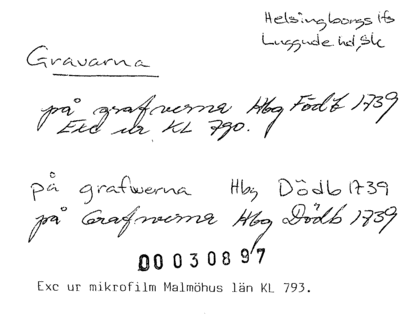 Helsingborgs lfs
Luggude hd, Sk
Gravarna
på grafverna Hbg Födb 1739
Exc ur KL 790.
på grafwerna Hbg Dödb 1739
på Grafwerna Hbg Dödb 1739
00030897
Exc ur mikrofilm Malmöhus län KL 793.